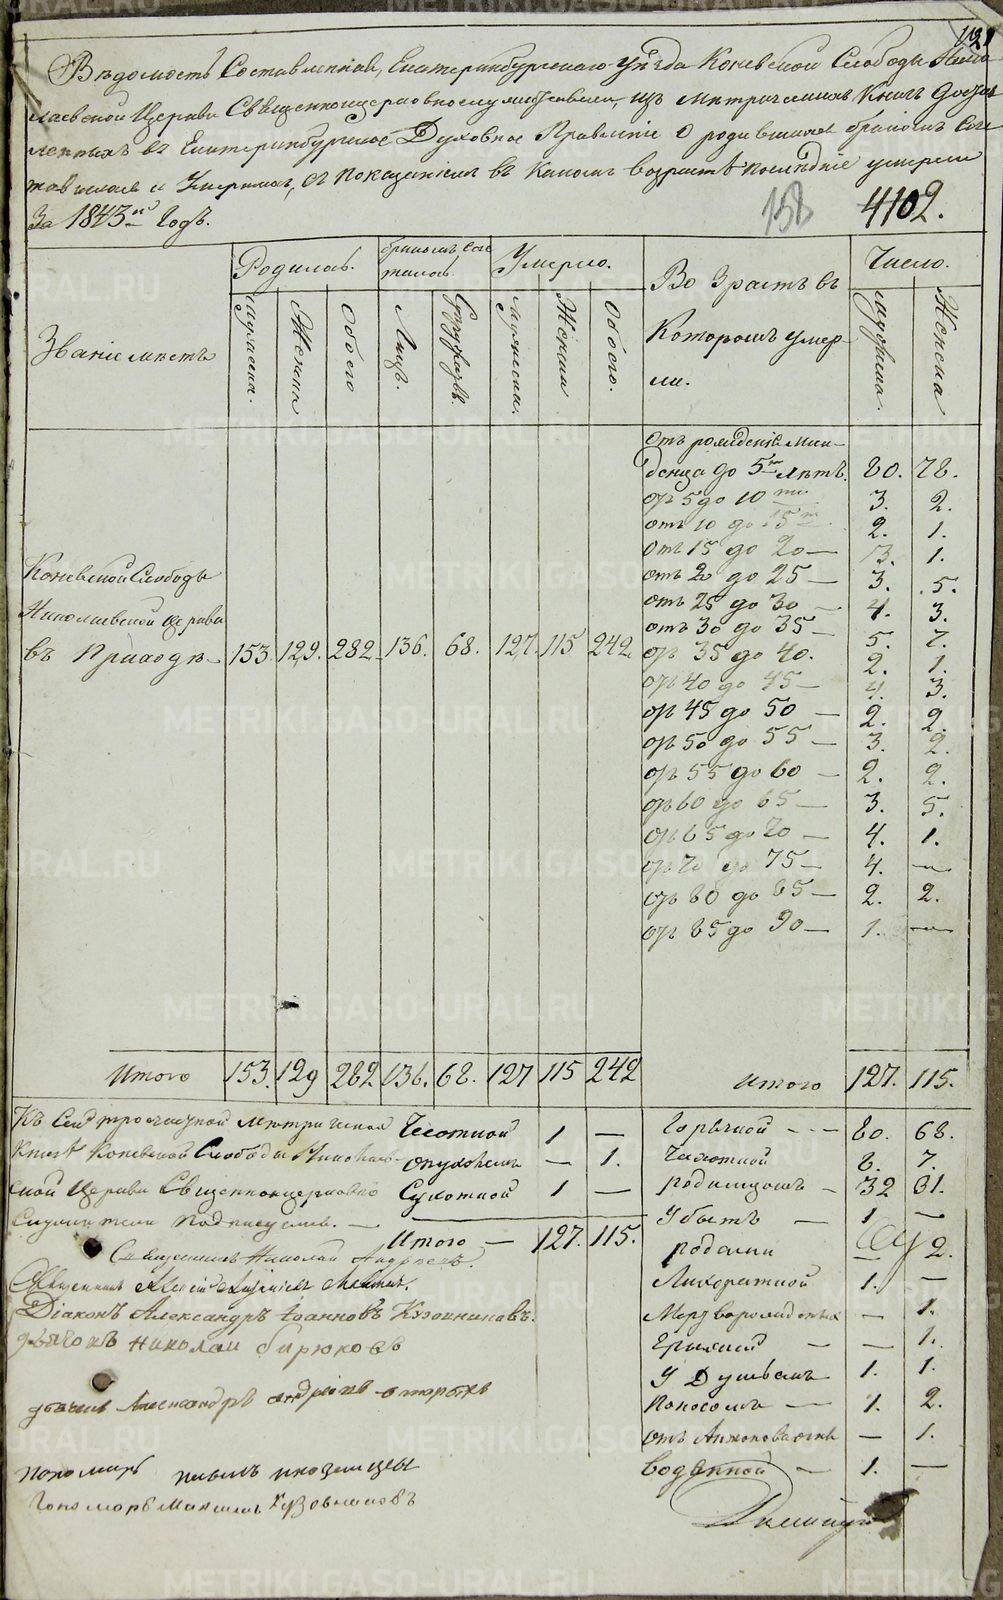 121
Вѣдомость Составленная, Екатеринбургскаго Уѣзда Коневской Слободы Нико-
лаевской Церкви Священноцерковнослужителями, изъ Метрическихъ Книгъ
въ Екатеринбургское Духовное Правленіе о родившихся бракомъ Соче-
тавшихся и Умершихъ, съ показаніемъ въ какомъ возрастѣ послѣдніе умерли
За 1843й Годъ.
158 4102.
Званіе мѣстъ
Родилось.
бракомъ соче-
талось.
Умерло.
Во Зрастъ въ
Которомъ умер-
ли.
Число.
Мужеска.
Женска
Обоего
Лицъ.
Супружъ.
Мужеска.
Женска
Обоего.
Мужеска.
Женска
отъ рожденія мла-
денца до 5ти лѣтъ. 80. 78.
отъ 5 до 10ти 3. 2.
отъ 10 до 15ти 2. 1.
отъ 15 до 20— 3. 1.
отъ 20 до 25— 3. 5.
отъ 25 до 30— 4. 3.
отъ 30 до 35— 5. 7.
отъ 35 до 40. 2. 1.
отъ 40 до 45— 4. 3.
отъ 45 до 50— 2. 2.
отъ 50 до 55— 3. 2.
отъ 55 до 60— 2. 2.
отъ 60 до 65— 3. 5.
отъ 65 до 70— 4. 1.
отъ 70 до 75— 4. —
отъ 80 до 85— 2. 2.
отъ 85 до 90— 1. —
Коневской Слободы
Николаевской церкви
въ Приходѣ— 153. 129. 282. 136. 68. 127. 115 242
Итого 153. 129 282 136. 68. 127 115 242
итого 127. 115.
Къ Сей метрической
Книгѣ Коневской Слободы Николаев-
ской Церкви Священноцерковно
Служители подписуемся.—
Чесоткой 1 —
опухолью — 1.
Сухоткой 1 —
Итого — 127. 115.
Горячкой — 80. 68.
Чахоткой 8. 7.
родимцомъ — 32 31.
Убитъ — 1 —
родами — 2.
Лихораткой 1. —
Мертворожденныхъ — 1.
Грыжей — — 1.
Удушьемъ 1. 1.
Поносомъ — 1. 2.
отъ — 1.
водянкой — 1. —
Священникъ Николай Андреевъ.
Священникъ
Діаконъ Александръ Іоанновъ Кузовниковъ.
дьячокъ Николай бирюковъ
дьячекъ Александръ
пономарь иноземцевъ
Пономарь Максимъ Кузовниковъ
METRIKI.GASO-URAL.RU